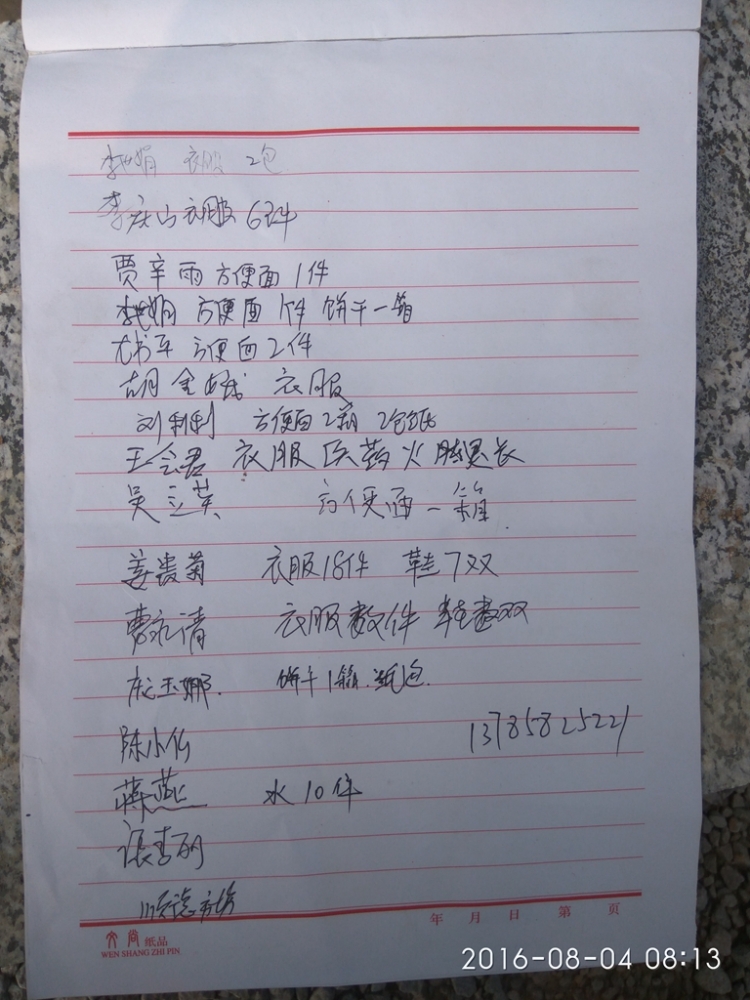 李 娟 衣服 2包
李庆山 衣服 6件
贾辛雨 方便面 1件
李 娟 方便面 1件 饼干一箱
尤书平 方便面 2件
胡金 衣服
刘利利 方便面2箱 2包纸
王会君 衣服 医药 火腿
吴立英 方便面一箱
姜贵菊 衣服18件 鞋7双
曹永清 衣服数件 鞋数双
庞玉娜. 饼干1箱.
陈小仙 13785825221
蒋燕 水10件
张青丽
顺德方坊
年 月 日 第 页
文尚 纸品
WEN SHANG ZHI PIN
2016-08-04 08:13